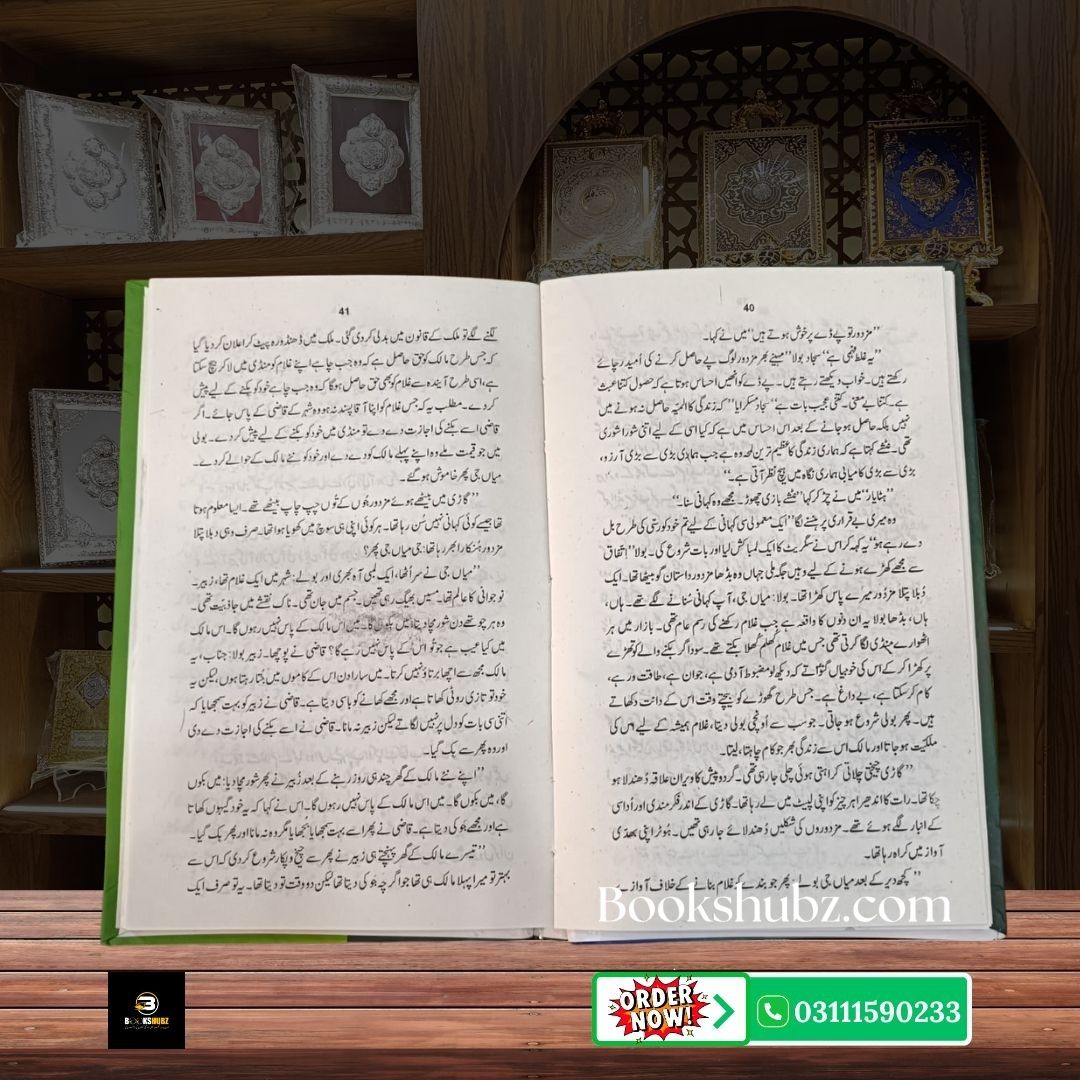 40
”مزدور تو پے ڈے پر خوش ہوتے ہیں“ میں نے کہا۔
”یہ غلط فہمی ہے“ سجاد بولا ”مہینے بھر مزدور لوگ پے حاصل کرنے کی اُمید رچائے
رکھتے ہیں۔ خواب دیکھتے رہتے ہیں۔ پے ڈے کو انھیں احساس ہوتا ہے کہ حصول کتنا عبث
ہے۔ کتنا بے معنی۔ کتنی عجیب بات ہے“ سجاد مسکرایا ”کہ زندگی کا المیّہ حاصل نہ ہونے میں
نہیں بلکہ حاصل ہو جانے کے بعد اس احساس میں ہے کہ کیا اسی کے لیے اتنی شورا شوری
تھی۔ نٹشے کہتا ہے کہ ہماری زندگی کا عظیم ترین لمحہ وہ ہے جب ہماری بڑی سے بڑی آرزو،
بڑی سے بڑی کامیابی ہماری نگاہ میں ہیچ نظر آتی ہے۔“
”ہٹا یار“ میں نے چڑ کر کہا ”نٹشے بازی چھوڑ۔ مجھے وہ کہانی سنا۔“
وہ میری بے قراری پر ہنسنے لگا ”ایک معمولی سی کہانی کے لیے تم خود کو رسّی کی طرح بل
دے رہے ہو“ یہ کہہ کر اس نے سگریٹ کا ایک لمبا کش لیا اور بات شروع کی۔ بولا ”اتفاق
سے مجھے کھڑے ہونے کے لیے وہیں جگہ ملی جہاں وہ بڈھا مزدور داستان گو بیٹھا تھا۔ ایک
دُبلا پتلا مزدور میرے پاس کھڑا تھا۔ بولا: میاں جی، آپ کہانی سُنانے لگے تھے۔ ہاں،
ہاں، بڈھا بولا یہ ان دنوں کا واقعہ ہے جب غلام رکھنے کی رسم عام تھی۔ بازار میں ہر
اٹھوارے منڈی لگا کرتی تھی جس میں غلام کھلم کُھلا بکتے تھے۔ سوداگر بکنے والے کو تھڑے
پر کھڑا کر کے اس کی خوبیاں گنواتے کہ دیکھ لو مضبوط آدمی ہے، جوان ہے، طاقت ور ہے،
کام کر سکتا ہے، بے داغ ہے۔ جس طرح گھوڑے کو بیچتے وقت اس کے دانت دکھاتے
ہیں۔ پھر بولی شروع ہو جاتی۔ جو سب سے اُونچی بولی دیتا، غلام ہمیشہ کے لیے اس کی
ملکیّت ہو جاتا اور مالک اس سے زندگی بھر جو کام چاہتا، لیتا۔
”گاڑی چیختی چلاتی کراہتی ہوئی چلی جا رہی تھی۔ گردوپیش کا ویران علاقہ دُھندلا ہو
چکا تھا۔ رات کا اندھیرا ہر چیز کو اپنی لپیٹ میں لے رہا تھا۔ گاڑی کے اندر فکر مندی اور اُداسی
کے انبار لگے ہوئے تھے۔ مزدوروں کی شکلیں دُھندلائے جا رہی تھیں۔ ہُوٹر اپنی بھدّی
آواز میں کراہ رہا تھا۔
”کچھ دیر کے بعد میاں جی بولے۔ پھر جو بندے کو غلام بنانے کے خلاف آوازیں
41
لگنے لگے تو ملک کے قانون میں بدلی کر دی گئی۔ ملک میں ڈھنڈورہ پیٹ کر اعلان کر دیا گیا
کہ جس طرح مالک کو حق حاصل ہے کہ وہ جب چاہے اپنے غلام کو منڈی میں لا کر بیچ سکتا
ہے، اسی طرح آیندہ سے غلام کو بھی حق حاصل ہوگا کہ وہ جب چاہے خود کو بکنے کے لیے پیش
کر دے۔ مطلب یہ کہ جس غلام کو اپنا آقا پسند نہ ہو وہ شہر کے قاضی کے پاس جائے۔ اگر
قاضی اسے بکنے کی اجازت دے دے تو منڈی میں خود کو بکنے کے لیے پیش کر دے۔ بولی
میں جو قیمت ملے وہ اپنے پہلے مالک کو دے دے اور خود کو نئے مالک کے حوالے کر دے۔
میاں جی پھر خاموش ہو گئے۔
”گاڑی میں بیٹھے ہوئے مزدور جُوں کے تُوں چپ چاپ بیٹھے تھے۔ ایسا معلوم ہوتا
تھا جیسے کوئی کہانی نہیں سن رہا تھا۔ ہر کوئی اپنی ہی سوچ میں کھویا ہوا تھا۔ صرف وہی دبلا پتلا
مزدور ہُنکارا بھر رہا تھا: جی میاں جی پھر؟
”میاں جی نے سر اُٹھا، ایک لمبی آہ بھری اور بولے: شہر میں ایک غلام تھا، زبیر۔
نوجوانی کا عالم تھا۔ مسیں بھیگ رہی تھیں۔ جسم میں جان تھی۔ ناک نقشے میں جاذبیت تھی۔
وہ ہر چوتھے دن شور مچا دیتا میں بکوں گا۔ میں اس مالک کے پاس نہیں رہوں گا۔ اس مالک
میں کیا عیب ہے جو تُو اس کے پاس نہیں رہے گا؟ قاضی نے پوچھا۔ زبیر بولا: جناب، یہ
مالک مجھ سے اچھا برتاؤ نہیں کرتا۔ میں سارا دن اس کے کاموں میں جتا رہتا ہوں، لیکن یہ
خود تو تازی روٹی کھاتا ہے اور مجھے کھانے کو باسی دیتا ہے۔ قاضی نے زبیر کو بہت سمجھایا کہ
اتنی سی بات کو دل پر نہیں لگاتے لیکن زبیر نہ مانا۔ قاضی نے اسے بکنے کی اجازت دے دی
اور وہ پھر سے بک گیا۔
”اپنے نئے مالک کے گھر چند ہی روز رہنے کے بعد زُبیر نے پھر شور مچا دیا: میں بکوں
گا، میں بکوں گا۔ میں اس مالک کے پاس نہیں رہوں گا۔ اس نے کہا کہ یہ خود گیہوں کھاتا
ہے اور مجھے جَو کی دیتا ہے۔ قاضی نے پھر اسے بہت سمجھایا بجھایا مگر وہ نہ مانا اور پھر بک گیا۔
”تیسرے مالک کے گھر پہنچتے ہی زبیر نے پھر سے چیخ و پکار شروع کر دی کہ اس سے
بہتر تو میرا پہلا مالک ہی تھا جو اگرچہ جَو کی دیتا تھا لیکن دو وقت تو دیتا تھا۔ یہ تو صرف ایک
Bookshubz.com
BOOKSHUBZ
ORDER
NOW!
03111590233